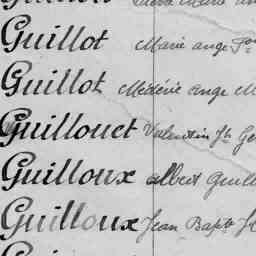 Guillot Marie ange
Guillot Médéric ange
Guillouet Valentin
Guilloux albert Guill
Guilloux Jean Bapte